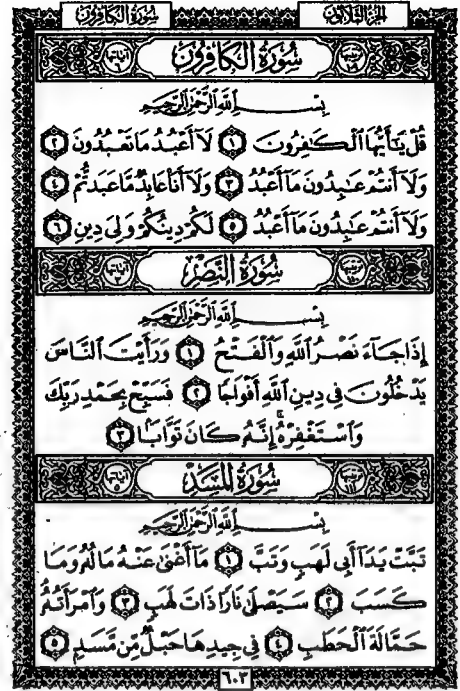 الجزء الثلاثون
سورة الكافرون
ترتيبها ١٠٩ سُورَةُ الْكَافِرُونَ آياتها ٦
بِسْمِ اللَّهِ الرَّحْمَٰنِ الرَّحِيمِ
قُلْ يَٰٓأَيُّهَا ٱلْكَٰفِرُونَ ١ لَآ أَعْبُدُ مَا تَعْبُدُونَ ٢
وَلَآ أَنتُمْ عَٰبِدُونَ مَآ أَعْبُدُ ٣ وَلَآ أَنَا۠ عَابِدٌ مَّا عَبَدتُّمْ ٤
وَلَآ أَنتُمْ عَٰبِدُونَ مَآ أَعْبُدُ ٥ لَكُمْ دِينُكُمْ وَلِىَ دِينِ ٦
ترتيبها ١١٠ سُورَةُ النَّصْرِ آياتها ٣
بِسْمِ اللَّهِ الرَّحْمَٰنِ الرَّحِيمِ
إِذَا جَآءَ نَصْرُ ٱللَّهِ وَٱلْفَتْحُ ١ وَرَأَيْتَ ٱلنَّاسَ
يَدْخُلُونَ فِى دِينِ ٱللَّهِ أَفْوَاجًا ٢ فَسَبِّحْ بِحَمْدِ رَبِّكَ
وَٱسْتَغْفِرْهُ ۚ إِنَّهُۥ كَانَ تَوَّابًۢا ٣
ترتيبها ١١١ سُورَةُ الْمَسَدِ آياتها ٥
بِسْمِ اللَّهِ الرَّحْمَٰنِ الرَّحِيمِ
تَبَّتْ يَدَآ أَبِى لَهَبٍ وَتَبَّ ١ مَآ أَغْنَىٰ عَنْهُ مَالُهُۥ وَمَا
كَسَبَ ٢ سَيَصْلَىٰ نَارًا ذَاتَ لَهَبٍ ٣ وَٱمْرَأَتُهُۥ
حَمَّالَةَ ٱلْحَطَبِ ٤ فِى جِيدِهَا حَبْلٌ مِّن مَّسَدٍۭ ٥
٦٠٣